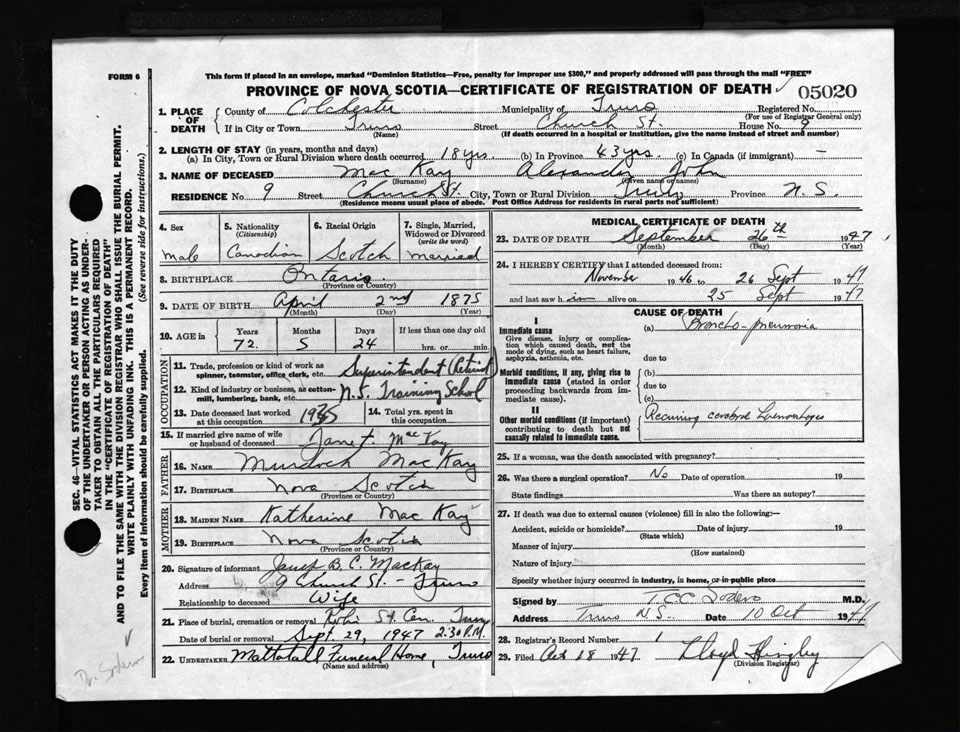 FORM 6
This form if placed in an envelope, marked "Dominion Statistics—Free, penalty for improper use $300," and properly addressed will pass through the mail "FREE"
PROVINCE OF NOVA SCOTIA—CERTIFICATE OF REGISTRATION OF DEATH 05020
1. PLACE OF DEATH
County of Colchester Municipality of Truro Registered No.
(For use of Registrar General only)
If in City or Town Truro Street Church St. House No. 9
(Name) (If death occurred in a hospital or institution, give the name instead of street and number)
2. LENGTH OF STAY (in years, months and days)
(a) In City, Town or Rural Division where death occurred 18 yrs. (b) In Province 43 yrs. (c) In Canada (if immigrant) —
3. NAME OF DECEASED Mac Kay Alexander John
(Surname) (Given name or names)
RESIDENCE No. 9 Street Church St. City, Town or Rural Division Truro Province N. S.
(Residence means usual place of abode. Post Office Address for residents in rural parts not sufficient)
4. Sex
male
5. Nationality
(Citizenship)
Canadian
6. Racial Origin
Scotch
7. Single, Married, Widowed or Divorced
(write the word)
married
8. BIRTHPLACE Ontario.
(Province or Country)
9. DATE OF BIRTH April 2nd 1875
(Month) (Day) (Year)
10. AGE in
Years Months Days If less than one day old
72. 5 24 hrs. or min.
OCCUPATION
11. Trade, profession or kind of work as spinner, teamster, office clerk, etc. Superintendent (Retired)
12. Kind of industry or business, as cotton-mill, lumbering, bank, etc. N.S. Training School
13. Date deceased last worked at this occupation 1935
14. Total yrs. spent in this occupation
15. If married give name of wife or husband of deceased Janet MacKay
FATHER
16. NAME Murdoch MacKay
17. BIRTHPLACE Nova Scotia
(Province or Country)
MOTHER
18. MAIDEN NAME Katherine Mac Kay
19. BIRTHPLACE Nova Scotia
(Province or Country)
20. Signature of informant Janet B. C. MacKay
Address 9 Church St. - Truro
Relationship to deceased Wife
21. Place of burial, cremation or removal St. Cem. Truro
Date of burial or removal Sept. 29, 1947 2:30 P.M.
22. UNDERTAKER Mattatall Funeral Home, Truro
(Name and address)
MEDICAL CERTIFICATE OF DEATH
23. DATE OF DEATH September 26th 1947
(Month) (Day) (Year)
24. I HEREBY CERTIFY that I attended deceased from:
November 1946 to 26 Sept 1947
and last saw him alive on 25 Sept 1947
CAUSE OF DEATH
I
Immediate cause
Give disease, injury or complication which caused death, not the mode of dying, such as heart failure, asphyxia, asthenia, etc.
(a) Broncho-pneumonia
due to
Morbid conditions, if any, giving rise to immediate cause (stated in order proceeding backwards from immediate cause).
(b)
due to
(c)
II
Other morbid conditions (if important) contributing to death but not causally related to immediate cause.
Recurring cerebral haemorrhages
25. If a woman, was the death associated with pregnancy?
26. Was there a surgical operation? No Date of operation 19
State findings Was there an autopsy?
27. If death was due to external causes (violence) fill in also the following:—
Accident, suicide or homicide? Date of injury 19
(State which)
Manner of injury
(How sustained)
Nature of injury
Specify whether injury occurred in industry, in home, or in public place
Signed by T. C. C. Sodero M.D.
Address Truro N.S. Date 10 Oct 1947
28. Registrar's Record Number 1
29. Filed Oct 18 1947 Lloyd Hingley
(Division Registrar)
SEC. 46—VITAL STATISTICS ACT MAKES IT THE DUTY
OF THE UNDERTAKER OR PERSON ACTING AS UNDERTAKER TO OBTAIN ALL THE PARTICULARS REQUIRED
IN THE "CERTIFICATE OF REGISTRATION OF DEATH"
AND TO FILE THE SAME WITH THE DIVISION REGISTRAR WHO SHALL ISSUE THE BURIAL PERMIT.
WRITE PLAINLY WITH UNFADING INK. THIS IS A PERMANENT RECORD.
Every item of information should be carefully supplied. (See reverse side for instructions.)
Dr. Sodero